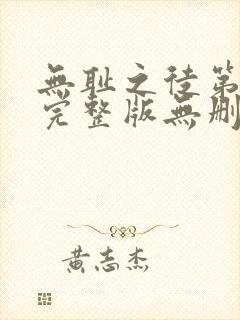 無耻之徒第
完整版無删
黄志杰